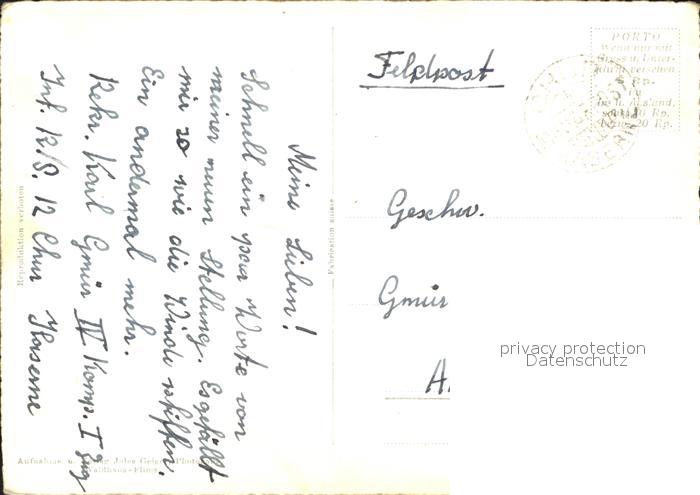 Meine Lieben!
Schnell ein paar Worte von
meiner neuen Stellung. Es gefällt
mir so wie die Winde pfiffen.
Ein andermal mehr.
Rekr. Karl Gmür IV Komp. I Zug
Inf. R/S. 12 Chur Kaserne
Feldpost
Geschw.
Gmür
A.
PORTO
Wenn nur mit
Gruss u. Unter-
schrift versehen
Rp.
im u. Ausland,
sonst 10 Rp.
bezw. 20 Rp.
Reproduktion verboten
Fabrication suisse
Aufnahme u. Verlag Jules Geiger, Photo
Waldhaus-Flims
privacy protection
Datenschutz